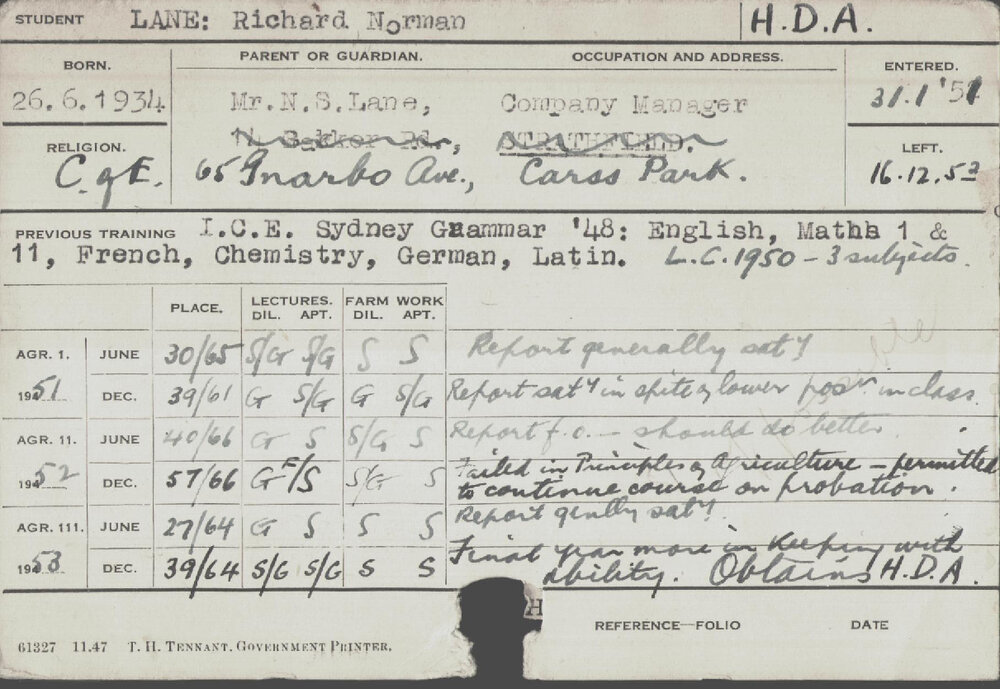 STUDENT LANE: Richard Norman H.D.A.
BORN. PARENT OR GUARDIAN. OCCUPATION AND ADDRESS. ENTERED.
26.6.1934 Mr.N.S.Lane, Company Manager 31.1 '51
Rd., STRATHFIELD.
RELIGION. LEFT.
C. of E. 65 Gnarbo Ave., Carss Park. 16.12.53
PREVIOUS TRAINING I.C.E. Sydney Grammar '48: English, Maths 1 &
11, French, Chemistry, German, Latin. L.C. 1950 – 3 subjects.
PLACE. LECTURES. FARM WORK
DIL. APT. DIL. APT.
AGR. 1. JUNE 30/65 S/G S/G S S Report generally sat'y
1951 DEC. 39/61 G S/G G S/G Report sat'y in spite of lower posn. in class.
AGR. 11. JUNE 40/66 G S S/G S Report f.o. – should do better.
1952 DEC. 57/66 G F/S S/G S Failed in Principles of Agriculture – permitted
to continue course on probation.
AGR. 111. JUNE 27/64 G S S S Report genlly sat'y.
1953 DEC. 39/64 S/G S/G S S Final year more in keeping with
ability. Obtains H.D.A.
H
REFERENCE—FOLIO DATE
61327 11.47 T. H. TENNANT. GOVERNMENT PRINTER.